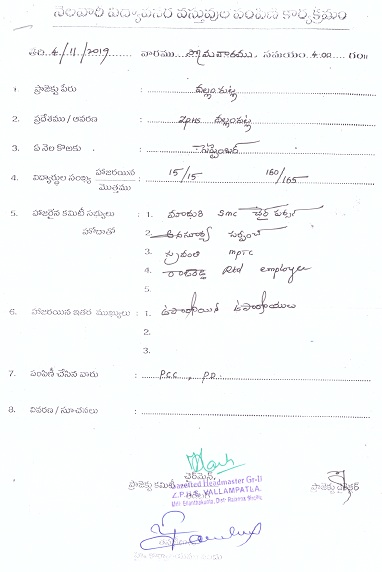 నెలవారి విద్యావసర వస్తువుల పంపిణి కార్యక్రమం
తేది. 4/11/2019 వారము సోమవారము. సమయం. 4.00 గం॥
1. ప్రాజెక్టు పేరు : వల్లంపట్ల
2. ప్రదేశము / ఆవరణ : ZPHS వల్లంపట్ల
3. ఏ నెల కొఱకు : సెప్టెంబర్
4. విద్యార్థుల సంఖ్య హాజరయిన మొత్తము : 15/15 160/165
5. హాజరైన కమిటీ సభ్యులు హోదాతో : 1. మాధురి SMC చైర్ పర్సన్
2. అనసూర్య సర్పంచ్
3. స్రవంతి MPTC
4. Rtd employee
5.
6. హాజరయిన ఇతర ముఖ్యులు : 1. ఉపాధ్యాయులు
2.
3.
7. పంపిణీ చేసిన వారు : P.C.C, P.D.
8. వివరణ / సూచనలు :
చైర్మెన్,
ప్రాజెక్టు కమిటీ
Gazetted Headmaster Gr-II
Z.P.H.S. VALLAMPATLA.
ప్రాజెక్టు డైరెక్టర్